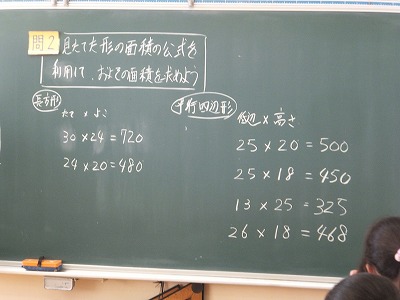 問2
見たてた形の面積の公式を
利用して、およその面積を求めよう
長方形
たて × よこ
30 × 24 = 720
24 × 20 = 480
平行四辺形
底辺 × 高さ
25 × 20 = 500
25 × 18 = 450
13 × 25 = 325
26 × 18 = 468